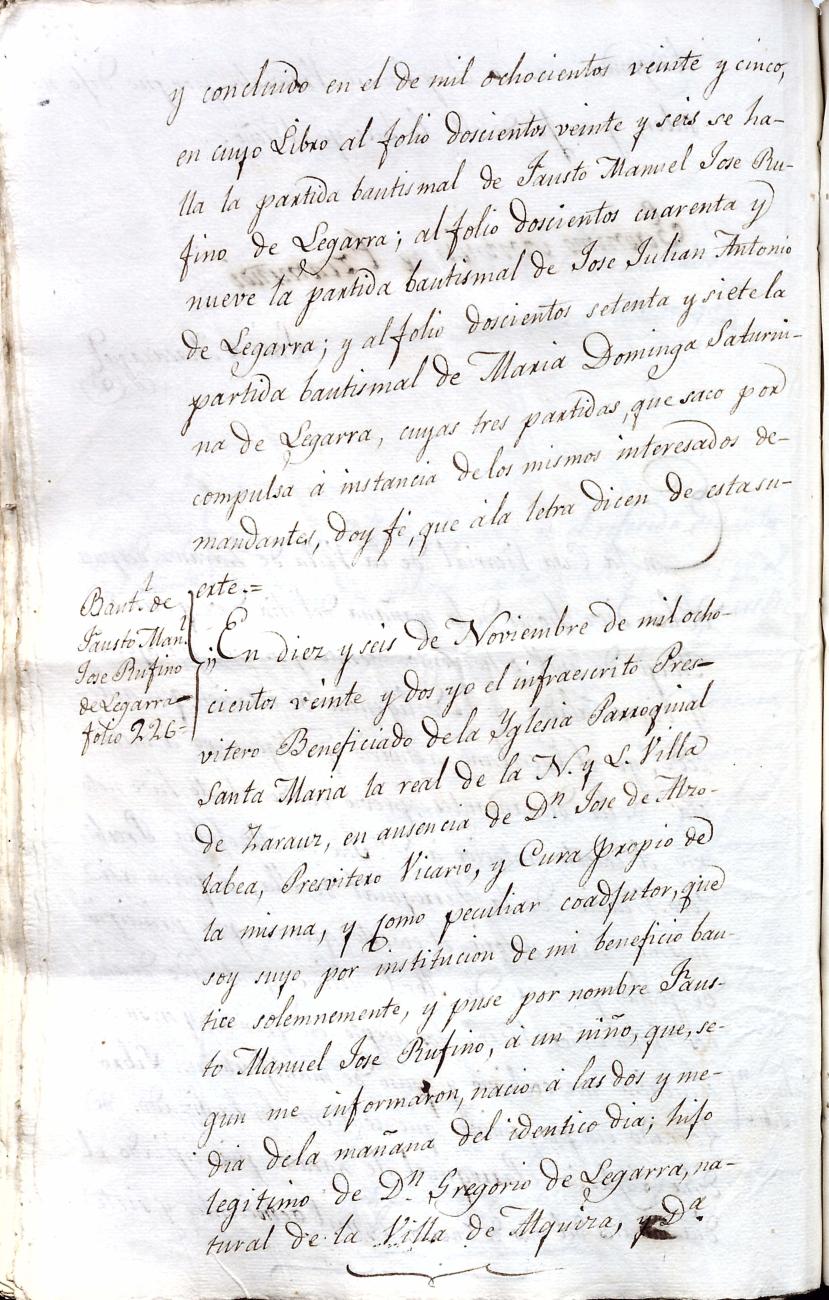 y concluido en el de mil ochocientos veinte y cinco,
en cuyo Libro al folio doscientos veinte y seis se ha-
lla la partida bautismal de Fausto Manuel Jose Ru-
fino de Legarra; al folio doscientos cuarenta y
nueve la partida bautismal de Jose Julian Antonio
de Legarra; y al folio doscientos setenta y siete la
partida bautismal de Maria Dominga Saturni-
na de Legarra, cuyas tres partidas, que saco por
compulsa á instancia de los mismos interesados de-
mandantes, doy fé, que á la letra dicen de esta su-
erte.=
Baut.l de
Fausto Man.l
Jose Rufino
de Legarra
folio 226-
„En diez y seis de Noviembre de mil ocho-
cientos veinte y dos yo el infraescrito Pres-
vitero Beneficiado de la Yglesia Parroquial
Santa Maria la real de la N. y L. Villa
de Zarauz, en ausencia de Dn Jose de Arzo-
labea, Presvitero Vicario, y Cura propio de
la misma, y como peculiar coadjutor, que
soy suyo por institucion de mi beneficio bau-
tice solemnemente, y puse por nombre Faus-
to Manuel Jose Rufino, á un niño, que, se-
gun me informaron, nacio á las dos y me-
dia de la mañana del identico dia; hijo
legitimo de Dn Gregorio de Legarra, na-
tural de la Villa de Alquiza, y Da